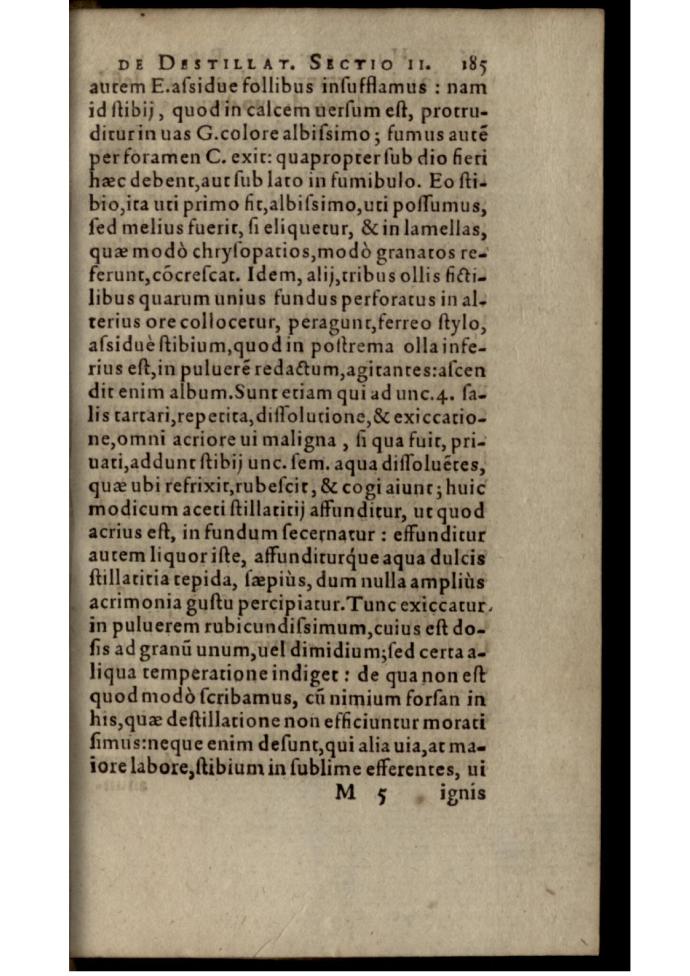 DE DESTILLAT. SECTIO II. 185
autem E.aſsidue follibus inſufflamus : nam
id ſtibij, quod in calcem uerſum eſt, protru-
ditur in uas G.colore albiſsimo; fumus autē
per foramen C. exit: quapropter ſub dio fieri
hæc debent,aut ſub lato in fumibulo. Eo ſti-
bio,ita uti primo fit,albiſsimo,uti poſſumus,
ſed melius fuerit, ſi eliquetur, & in lamellas,
quæ modò chryſopatios,modò granatos re-
ferunt,cōcreſcat. Idem, alij,tribus ollis ficti-
libus quarum unius fundus perforatus in al-
terius ore collocetur, peragunt,ferreo ſtylo,
aſsiduè ſtibium,quod in poſtrema olla infe-
rius eſt,in puluerē redactum,agitantes:aſcen
dit enim album.Sunt etiam qui ad unc.4. ſa-
lis tartari,repetita,diſſolutione,& exiccatio-
ne,omni acriore ui maligna , ſi qua fuit, pri-
uati,addunt ſtibij unc. ſem. aqua diſſoluētes,
quæ ubi refrixit,rubeſcit, & cogi aiunt; huic
modicum aceti ſtillatitij affunditur, ut quod
acrius eſt, in fundum ſecernatur : effunditur
autem liquor iſte, affunditurq́ue aqua dulcis
ſtillatitia tepida, ſæpiùs, dum nulla ampliùs
acrimonia guſtu percipiatur.Tunc exiccatur
in puluerem rubicundiſsimum,cuius eſt do-
ſis ad granū unum,uel dimidium;ſed certa a-
liqua temperatione indiget : de qua non eſt
quod modò ſcribamus, cū nimium forſan in
his,quæ deſtillatione non efficiuntur morati
ſimus:neque enim deſunt,qui alia uia,at ma-
iore labore,ſtibium in ſublime efferentes, ui
M 5 ignis